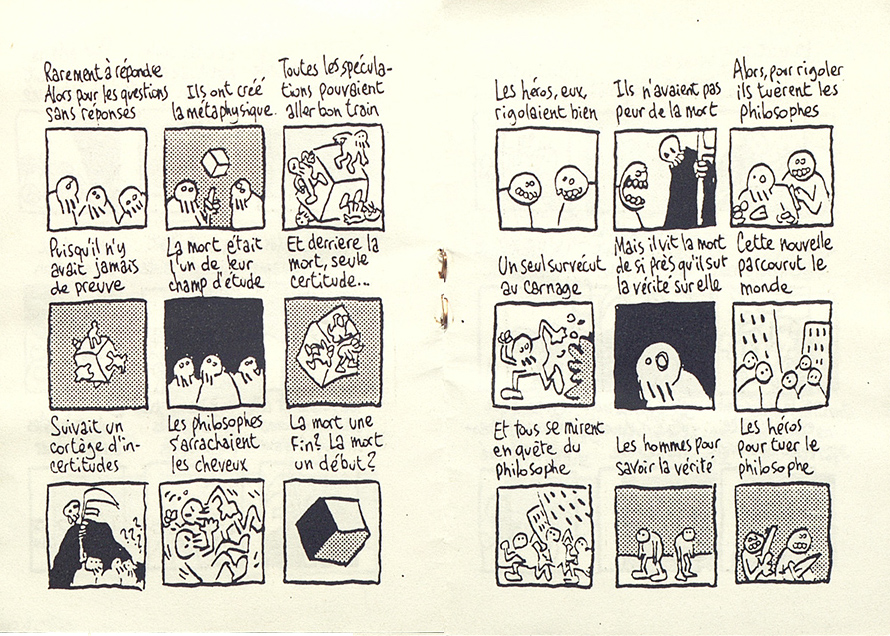 Rarement à répondre
Alors pour les questions
sans réponses
Ils ont créé
la métaphysique.
Toutes les spécula-
tions pouvaient
aller bon train
Puisqu'il n'y
avait jamais
de preuve
La mort était
l'un de leur
champ d'étude
Et derrière la
mort, seule
certitude...
Suivait un
cortège d'in-
certitudes
???
Les philosophes
s'arrachaient
les cheveux
La mort une
fin? La mort
un début?
Les héros, eux,
rigolaient bien
Ils n'avaient pas
peur de la mort
Alors, pour rigoler
ils tuèrent les
philosophes
Un seul survécut
au carnage
Mais il vit la mort
de si près qu'il sut
la vérité sur elle
Cette nouvelle
parcourut le
monde
Et tous se mirent
en quête du
philosophe
Les hommes pour
savoir la vérité
Les héros
pour tuer le
philosophe